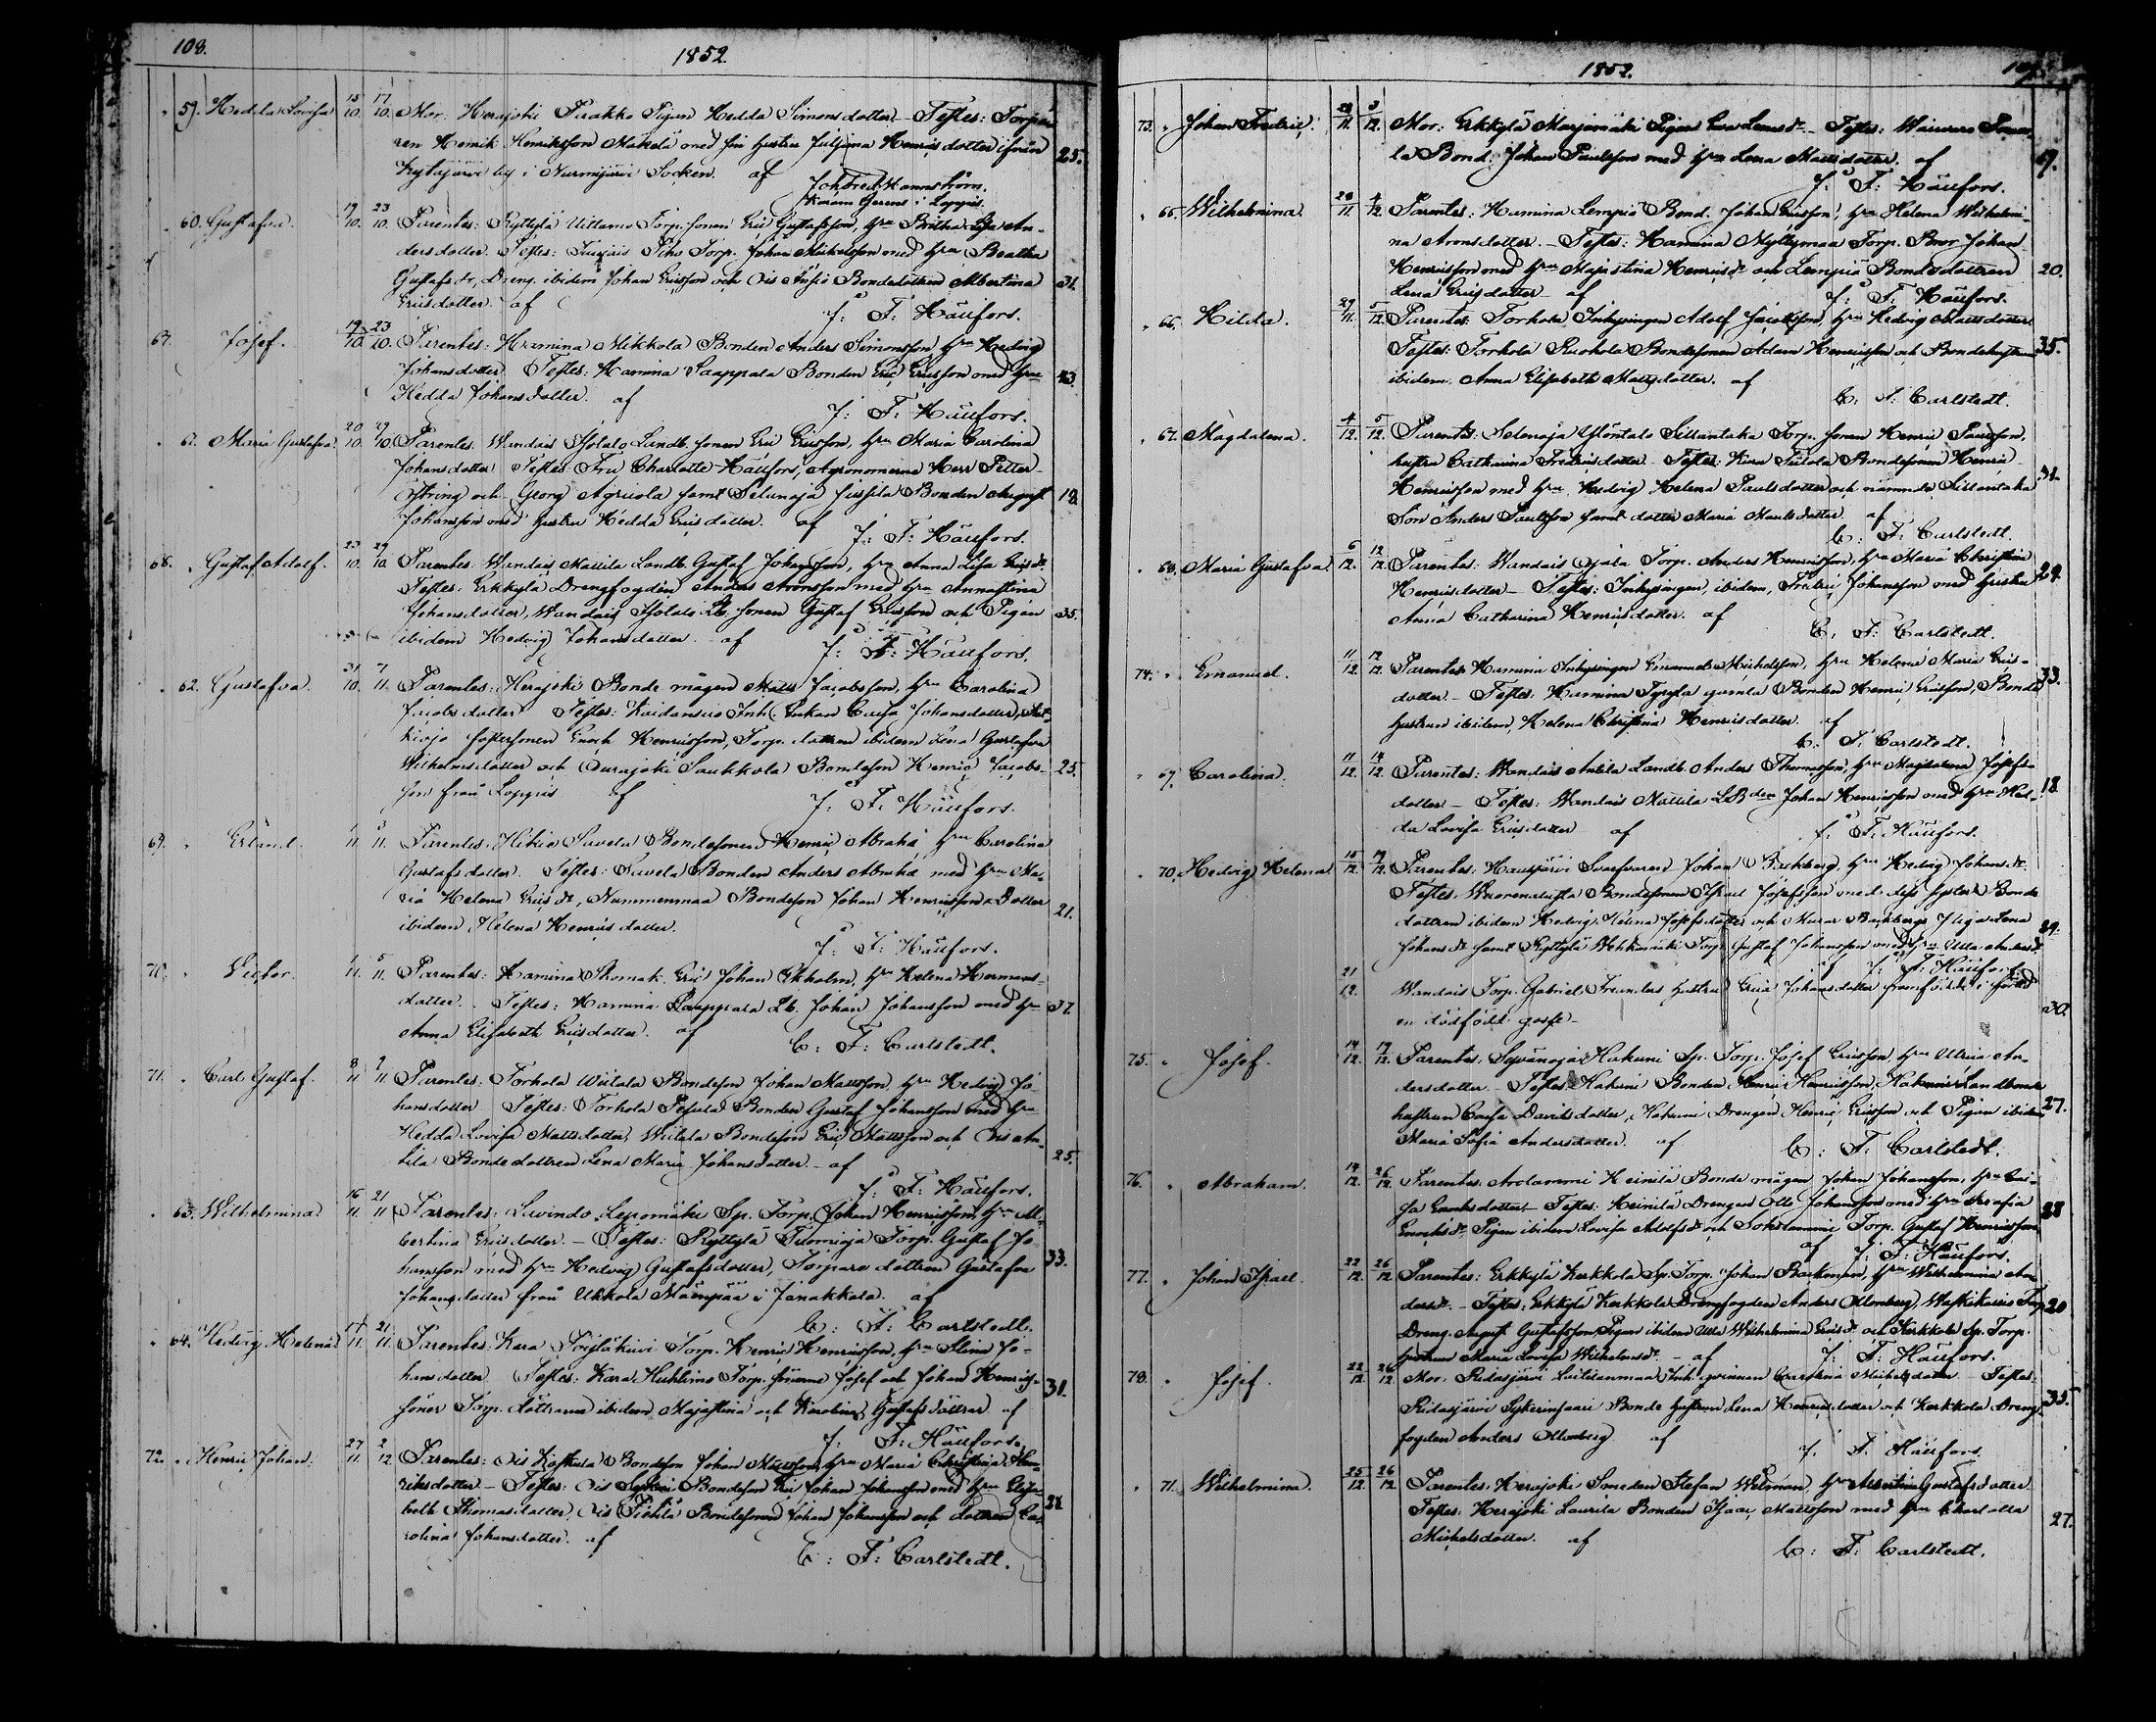 108.
1852.
59. Hedda Lovisa 15/10. 17/10. Mor: Herajoki Pirakko Pigan Hedda Simonsdotter – Testes: Torpa-
ren Henrik Henriksson Mäkelä med sin hustru Juliana Henriksdotter ifrån 25.
Kytäjärvi by i Nurmijärvi Socken. af Joh: Fred:
i Loppis.
60. Gustafva. 19/10. 23/10. Parentes: Ryttylä Torp. sonen Eric Gustafsson, hru Britha Lisa An-
dersdotter. Testes: Torp. Johan Mickelsson med hru Beatha
Gustafsdr, Dreng. ibidem Johan Ericsson och Ois Bondedottren Albertina 31.
Ericsdotter. af J: F: Häufors.
67. Josef. 19/10. 23/10. Parentes: Hamina Mikkola Bonden Anders Simonsson, hru Hedvig
Johansdotter. Testes: Hamina Saappala Bonden Eric Ericsson med hru 43.
Hedda Johansdotter. af
J: F: Häufors.
61. Maria Gustafva. 20/10. 29/10. Parentes: Wandais Landb. sonen Eric Ericsson, hru Maria Carolina
Johansdotter. Testes: Fru Charlotte Häufors, Agronomerne Herr Petter
Östring och Georg Agricola samt Selänoja Jussila Bonden August 18.
Johansson med hustru Hedda Ericsdotter. af
J: F: Häufors.
68. Gustaf Adolf. 23/10. 29/10. Parentes: Wandais Mattila Landb. Gustaf Johansson, hru Anna Lisa Ericsdr
Testes: Erkkylä Drengfogden Anders Aronsson med hru Annastina
Johansdotter, Wandais Lb. sonen Gustaf Ericsson och Pigan 35.
ibidem Hedvig Johansdotter. af
J: F: Häufors.
62. Gustafva. 31/10. 7/11. Parentes: Herajoki Bonde mågen Matts Jacobsson, hru Carolina
Jacobsdotter. Testes: Inh: Enkan Caisa Johansdotter,
kioja fostersonen Enoch Henricsson, Torp. dottren ibidem Lena Gustafva
Wilhelmsdotter och Ourajoki Saukkola Bondeson Henric Jacobs- 25.
son från Loppis af
J: F: Häufors.
69. Erland. 1/11. 3/11. Parentes: Hikiä Savela Bondesonen Henric Abraha. hru Carolina
Gustafsdotter. Testes: Savela Bonden Anders Abraha. med hru Ma-
ria Helena Ericsdr, Nummenmaa Bondeson Johan Henricsson, Dotter 21.
ibidem Helena Henricsdotter.
J: F: Häufors.
70. Victor. 1/11. 5/11. Parentes: Hamina Skomak. Eric Johan Ekholm, hru Helena Hermans-
dotter. Testes: Hamina Saappala Lb. Johan Johansson med hru 37.
Anna Elisabeth Ericsdotter. af
C: F: Carlstedt.
71. Carl Gustaf. 8/11. 9/11. Parentes: Torhola Wiitala Bondeson Johan Mattsson, hru Hedvig Jo-
hansdotter. Testes: Torhola Bonden Gustaf Johansson med hru
Hedda Lovisa Mattsdotter, Wiitala Bondeson Eric Mattsson och Ois An-
tila Bondedottren Lena Maria Johansdotter. – af 25.
J: F: Häufors.
63. Wilhelmina 16/11. 21/11. Parentes: Lavindo Lepomäki Sp. Torp. Johan Henricsson, hru Al-
bertina Ericsdotter. – Testes: Ryttylä Tuomioja Torp. Gustaf Jo-
hansson med hru Hedvig Gustafsdotter, Torpare dottren Gustafva 33.
Johansdotter från Ukkola Mäenpää i Janakkala. af
C: F: Carlstedt.
64. Hedvig Helena. 17/11. 21/11. Parentes: Kara Torp. Henric Henricsson, hru Stina Jo-
hansdotter. Testes: Kara Huhtimo Torp. sönerne Josef och Johan Henrics- 31.
söner Torp. döttrarna ibidem Majastina och Karolina Gustafs döttrar. af
J: F: Häufors.
72. Henric Johan. 27/11. 2/12. Parentes: Ois Koskela Bondeson Johan Mattsson, hru Maria Christina Hen-
riksdotter – Testes: Ois Bondeson Eric Johan Johansson med hru Elisa-
beth Thomasdotter, Ois Pietilä Bondesonen Johan Johansson och dottren Ca- 21.
rolina Johansdotter. af
C: F: Carlstedt.
1852.
73. Johan Fredric. 28/11. 3/12. Mor: Erkkylä Marjamäki Pigan Eva Lenasdr – Testes:
la Bond. Johan Paulsson med hru Lena Mattsdotter. af 19.
J: F: Häufors.
65. Wilhelmina. 28/11. 4/12. Parentes: Hamina Lempiä Bond. Johan Ericsson, hru Helena Wilhelmi-
na Aronsdotter. – Testes: Hamina Myllymaa Torp. Bror Johan
Henricsson med hru Majastina Henricsdr och Lempiä Bondedottren 20.
Lena Ericsdotter – af J: F: Häufors.
66. Hilda. 29/11. 5/12. Parentes: Torhola Inhysingen Adolf Jacobsson, hru Hedvig Mattsdotter
Testes: Torhola Ruohola Bondesonen Adam Henricsson och Bondehustrun 35.
ibidem Anna Elisabeth Mattsdotter. af
C: F: Carlstedt.
67. Magdalena. 4/12. 5/12. Parentes: Selänoja Ylöntalo Sillantaka Torp. sonen Henric Paulsson,
hustru Catharina Fredricsdotter. Testes: Bondesonen Henric
Henricsson med hru Hedvig Helena Paulsdotter och nämnde Sillantaka 31.
Son Anders Paulsson samt dotter Maria Paulsdotter. af
C: F: Carlstedt.
68. Maria Gustafva. 6/12. 12/12. Parentes: Wandais Ojala Torp. Anders Henricsson, hru Maria Christina
Henricsdotter – Testes: Inhysingen, ibidem, Fredric Johansson med hustru 29.
Anna Catharina Henricsdotter. af
C: F: Carlstedt.
74. Emanuel. 11/12. 12/12. Parentes: Hamina Inhysingen Emanuel Michelsson, hru Helena Maria Erics-
dotter. – Testes: Hamina gamla Bonden Henric Ericsson, Bonde 33.
hustrun ibidem, Helena Christina Henricsdotter. af
C: F: Carlstedt.
69. Carolina. 11/12. 14/12. Parentes: Wandais Antila Landb. Anders Thomasson, hru Magdalena Josefs-
dotter – Testes: Wandais Mattila LBden Johan Henricsson med hru Hed- 18.
da Lovisa Ericsdotter af
J: F: Häufors.
70. Hedvig Helena. 15/12. 19/12. Parentes: Hausjärvi Svarfvaren Johan Backberg, hru Hedvig Johansdr
Testes: Bondesonen Israel Josefsson med dess syster Bonde
dottren ibidem Hedvig Helena Josefsdotter och Backbergs Piga Lena 29.
Johansdr samt Ryttylä Torp. Gustaf Johansson med hru Ulla Andersdr
J: F: Häufors.
21/12. Wandais Torp. Gabriel hustru Erica Johansdotter framfödde i förtid
en dödfödt gosse – 30.
75. Josef. 14/12. 19/12. Parentes: Syvänoja Hakuni Sp. Torp. Josef Ericsson, hru Ulrica An-
dersdotter. – Testes: Hakuni Bonden Henric Henricsson, Hakuni Landbonde
hustrun Caisa Davidsdotter, Hakuni Drengen Henric Ericsson och Pigan ibidem 27.
Maria Sofia Andersdotter. af
C: F: Carlstedt.
76. Abraham. 19/12. 26/12. Parentes: Arolammi Heinilä Bonde mågen Johan Johansson, hru Cai-
sa Enochsdotter – Testes: Heinilä Drengen Otto Johansson med hru Serafia 28
Enochsdr, Pigan ibidem Lovisa Adolfsdr och Torp. Gustaf Henricsson
af J: F: Häufors.
77. Johan Israel. 22/12. 26/12. Parentes: Erkkylä Kerkkola Sp. Torp. Johan Backman, hru Wilhelmina An-
dersdr. – Testes: Erkkylä Kerkkola Drengfogden Anders Ollonberg, Torp 20
Dreng. August Gustafsson, Pigan ibidem Ulla Wilhelmina Ericsdr och Kerkkola Sp. Torp.
hustrun Maria Lovisa Wilhelmsdr. – af J: F: Häufors.
78. Josef. 22/12. 26/12. Mor: Ridasjärvi Inh. qvinnan Carolina Michelsdotter – Testes:
Ridasjärvi Sykerinsaari Bonde hustrun Lena Henricsdotter och Kerkkola Dreng- 35.
fogden Anders Ollonberg. af
J: F: Häufors.
71. Wilhelmina. 25/12. 26/12. Parentes: Herajoki Smeden Stefan Welman, hru Albertina Gustafsdotter.
Testes: Herajoki Laurila Bonden Isaac Mattsson med hru Charlotta 27.
Michelsdotter. af
C: F: Carlstedt.